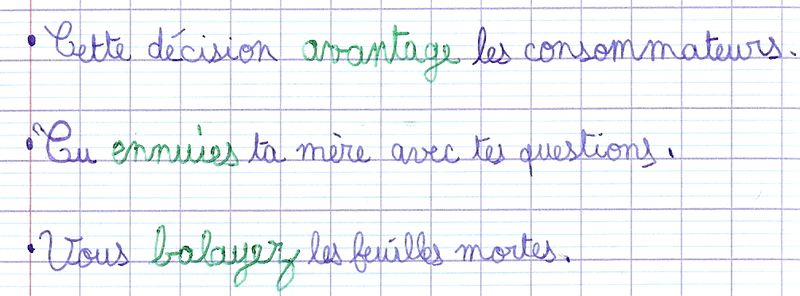 • Cette décision avantage les consommateurs.
• Tu ennuies ta mère avec tes questions.
• Vous balayez les feuilles mortes.